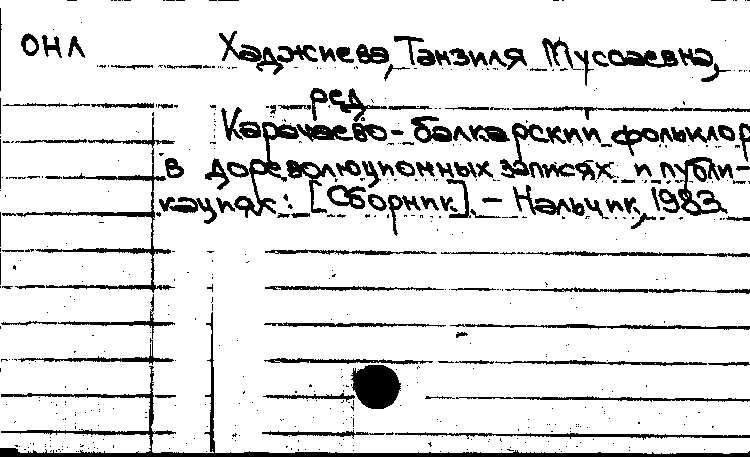 ОНЛ Хаджиева, Танзиля Муссаевна,
ред.
Карачаево-балкарский фольклор
в дореволюционных записях и публи-
кациях: [Сборник]. – Нальчик, 1983